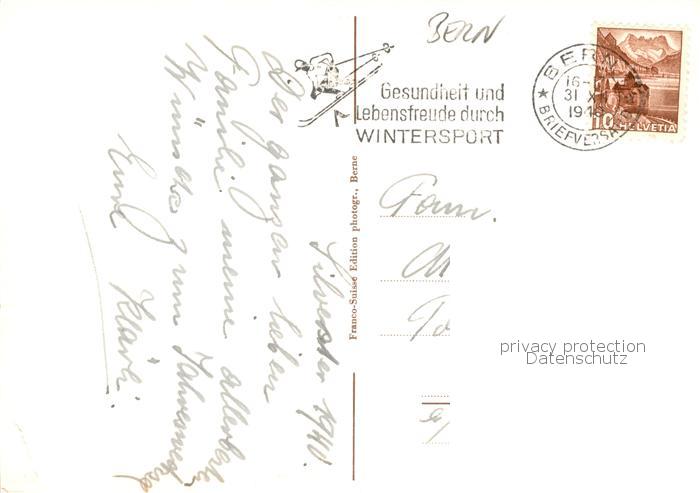 BERN
Gesundheit und
Lebensfreude durch
WINTERSPORT
BERN
16-
31 XII
1940
BRIEFVERSAND
10 HELVETIA
Silvester 1940.
Der ganzen lieben
Familie meine allerbesten
Wünsche zum Jahreswechsel
Eure Klärli.
Franco-Suisse Edition photogr., Berne
Fam.
privacy protection
Datenschutz